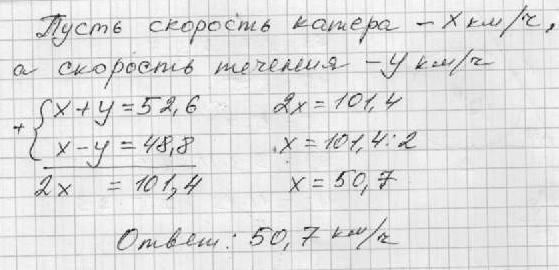 Пусть скорость катера – x км/ч,
а скорость течения – y км/ч
+ { x + y = 52,6
x – y = 48,8
2x = 101,4
2x = 101,4
x = 101,4 : 2
x = 50,7
Ответ: 50,7 км/ч